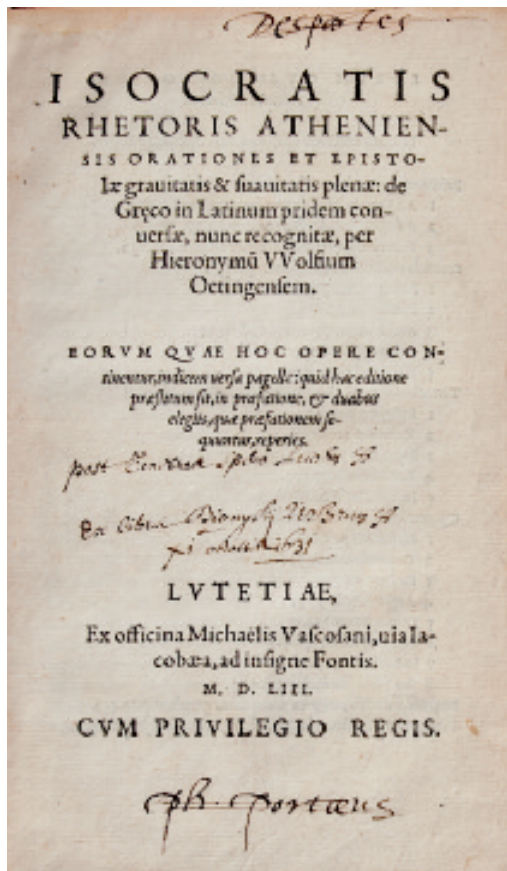 Desportes
ISOCRATIS
RHETORIS ATHENIEN-
SIS ORATIONES ET EPISTO-
læ grauitatis & suauitatis plenæ: de
Gręco in Latinum pridem con-
uersæ, nunc recognitæ, per
Hieronymū VVolfium
Oetingensem.
EORVM QVAE HOC OPERE CON-
tinentur, indicem versa pagella: quid hac editione
præstitum sit, in præfatione, & duabus
elegiis, quæ præfationem se-
quuntur, reperies.
post
Ex libris Dionysij
LVTETIAE,
Ex officina Michaëlis Vascosani, uia Ia-
cobæa, ad insigne Fontis.
M. D. LIII.
CVM PRIVILEGIO REGIS.
ph. portæus